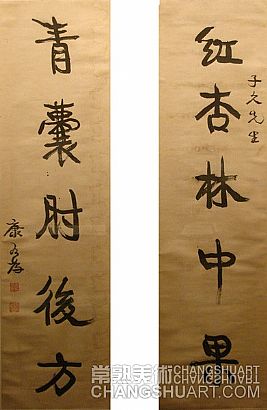 红杏林中果
子久先生
青囊肘後方
康有為
常熟美術 CHANGSHUART
CHANGSHUART.COM